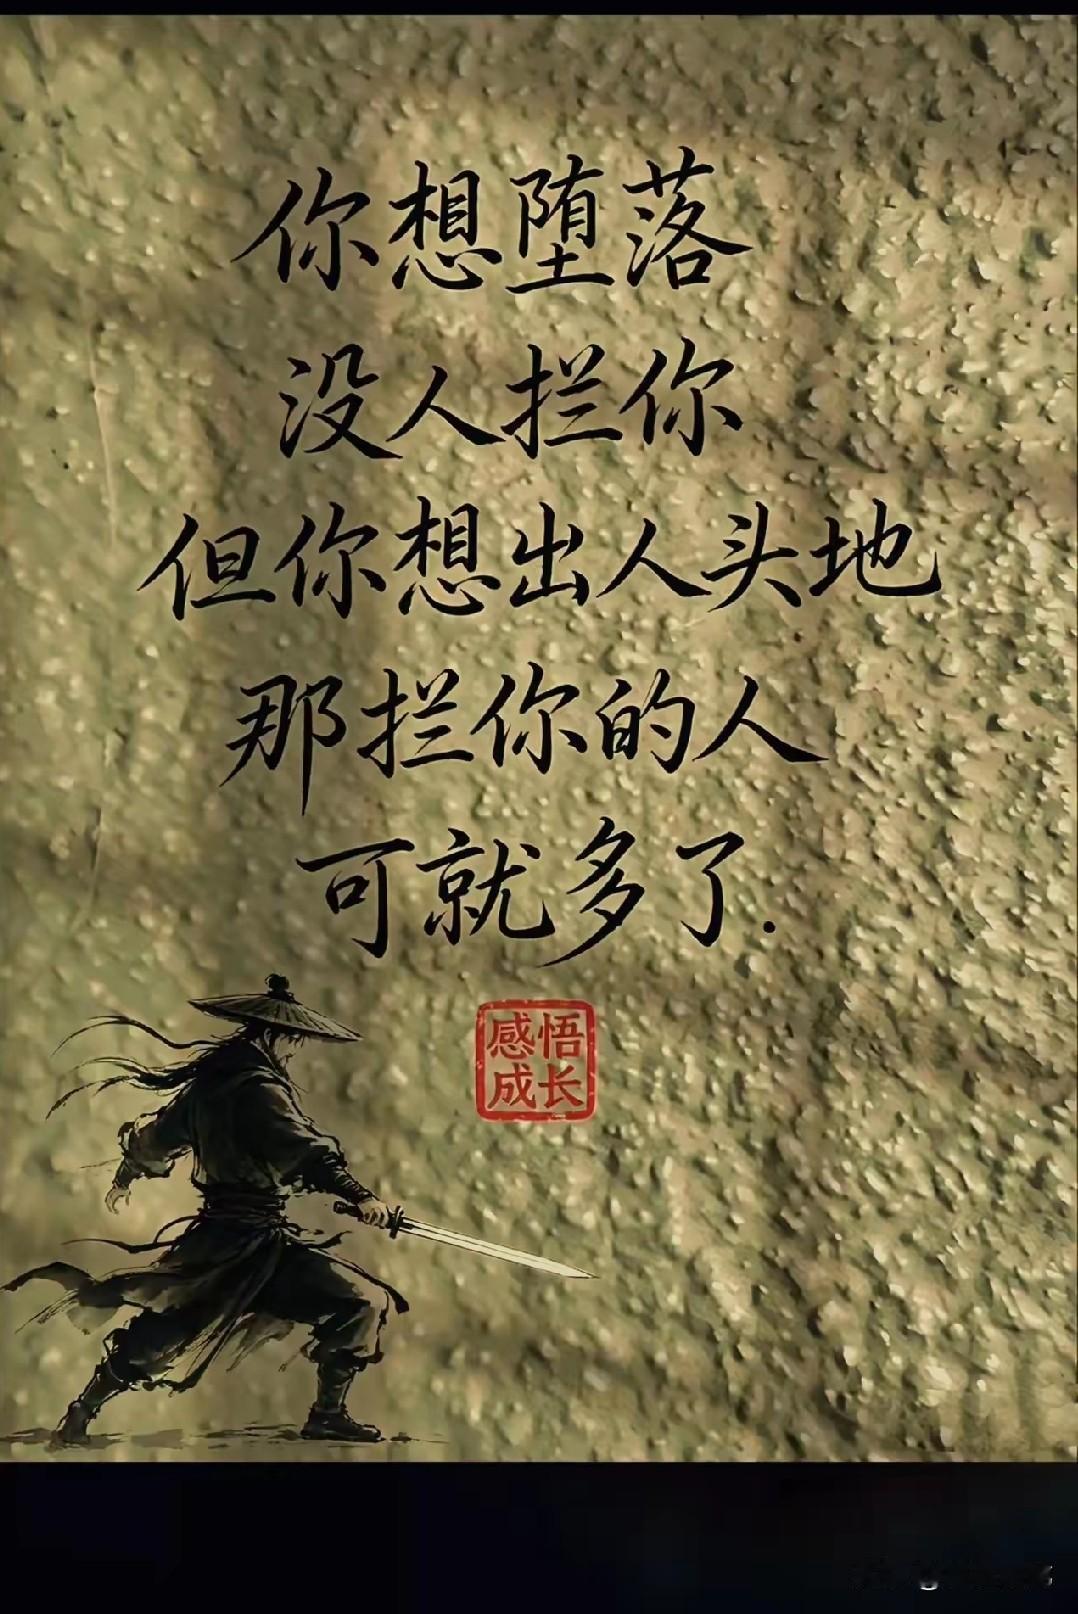 你想堕落
没人拦你
但你想出人头地
那拦你的人
可就多了.
感悟
成长